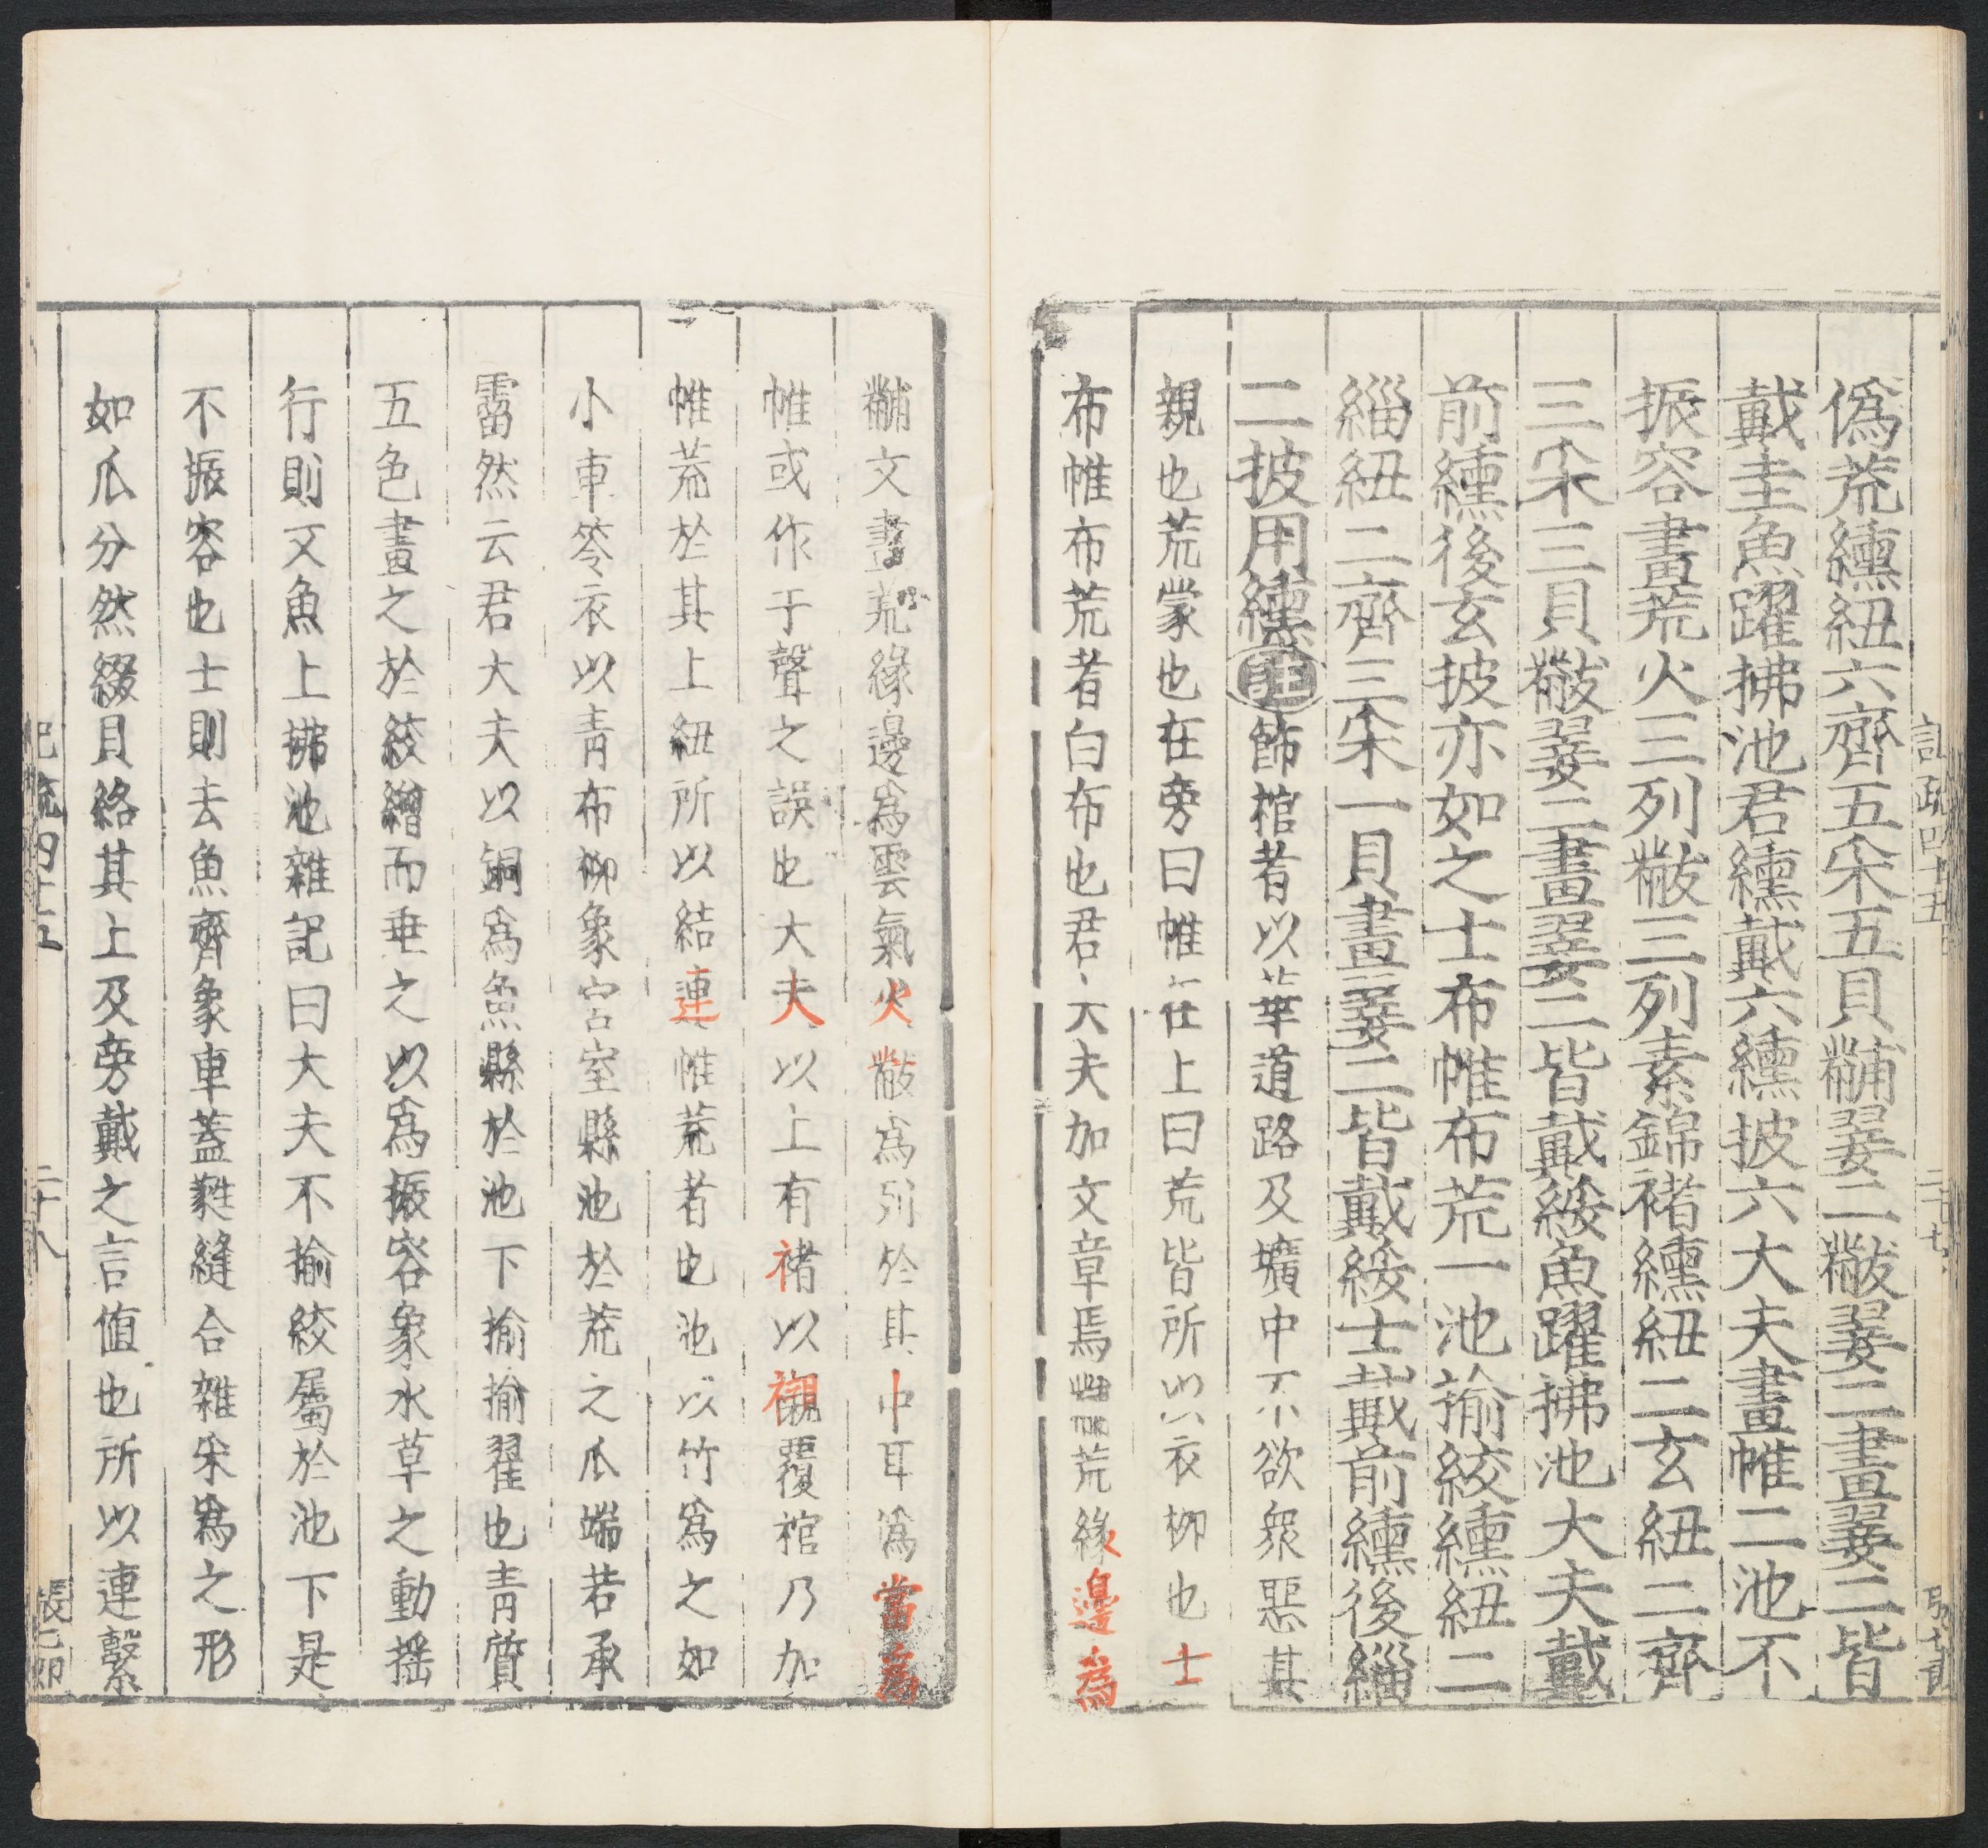 偽荒纁紐六齊五采五貝黼翣二黻翣二畫翣二皆
戴圭魚躍拂池君纁戴六纁披六大夫畫帷二池不
振容畫荒火三列黻三列素錦褚纁紐二玄紐二齊
三采三貝黻翣二畫翣二皆戴綏魚躍拂池大夫戴
前纁後玄披亦如之士布帷布荒一池揄絞纁紐二
緇紐二齊三采一貝畫翣二皆戴綏士戴前纁後緇
二披用纁註飾棺者以華道路及壙中不欲衆惡其
親也荒蒙也在旁曰帷在上曰荒皆所以衣柳也士
布帷布荒者白布也君大夫加文章焉黼荒緣邊為
黼文畫荒緣邊爲雲氣火黻爲列於其中耳偽當為
帷或作于聲之誤也大夫以上有褚以襯覆棺乃加
帷荒於其上紐所以結連帷荒者也池以竹爲之如
小車笭衣以青布柳象宮室縣池於荒之爪端若承
霤然云君大夫以銅爲魚縣於池下揄揄翟也青質
五色畫之於絞繒而垂之以爲振容象水草之動搖
行則又魚上拂池雜記曰大夫不揄絞屬於池下是
不振容也士則去魚齊象車蓋蕤縫合雜采爲之形
如爪分然綴貝絡其上及旁戴之言值也所以連繫
記疏四十五
二十八